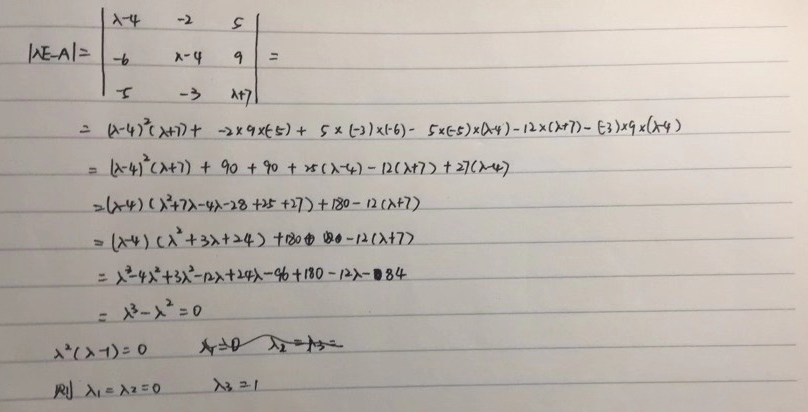 |λE-A| = | λ-4 -2 5 |
| -6 λ-4 9 | =
| -5 -3 λ+7 |
= (λ-4)²(λ+7) + -2×9×(-5) + 5×(-3)×(-6) - 5×(-5)×(λ-4) - 12×(λ+7) - (-3)×9×(λ-4)
= (λ-4)²(λ+7) + 90 + 90 + 25(λ-4) - 12(λ+7) + 27(λ-4)
= (λ-4)(λ²+7λ-4λ-28+25+27) + 180 - 12(λ+7)
= (λ-4)(λ²+3λ+24) + 180 - 12(λ+7)
= λ³-4λ²+3λ²-12λ+24λ-96+180-12λ-84
= λ³-λ²=0
λ²(λ-1)=0
则 λ₁=λ₂=0 λ₃=1